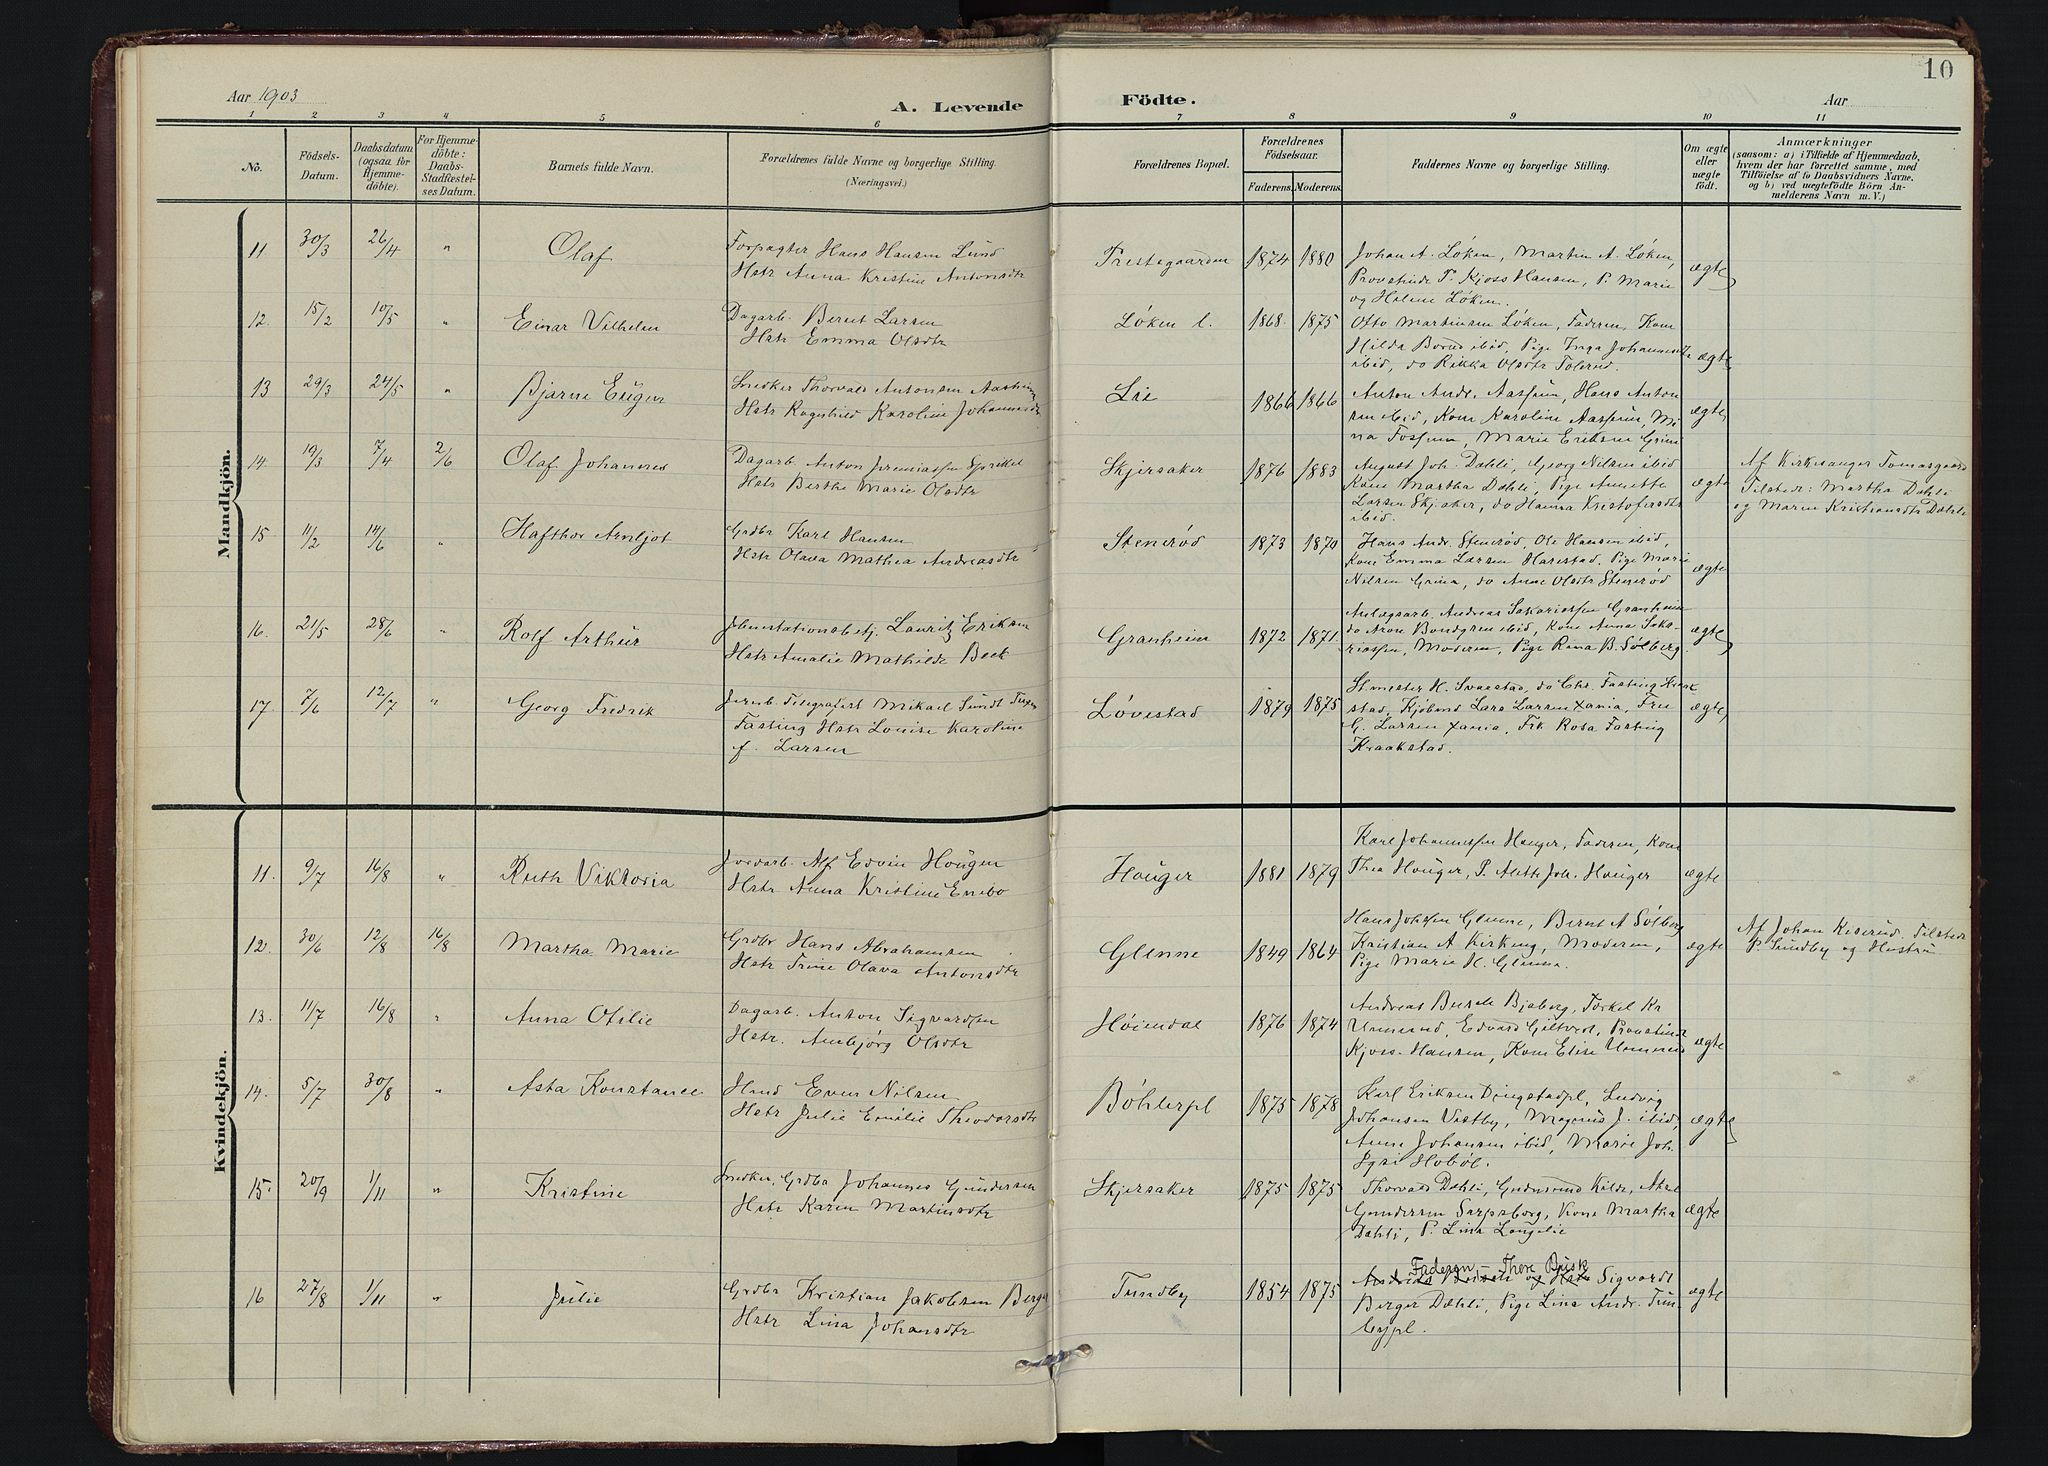 10
Aar 1903
A. Levende
Födte.
Aar
1 2 3 4 5 6 7 8 9 10 11
No.
Födsels-
Datum.
Daabsdatum
(ogsaa for
Hjemme-
döbte).
For Hjemme-
döbte:
Daabs-
Stadfæstel-
ses Datum.
Barnets fulde Navn.
Forældrenes fulde Navne og borgerlige Stilling.
(Næringsvei.)
Forældrenes Bopæl.
Forældrenes
Födselsaar.
Faderens. Moderens.
Faddernes Navne og borgerlige Stilling.
Om ægte
eller
uægte
födt.
Anmærkninger
(saasom: a) i Tilfælde af Hjemmedaab,
hvem der har forrettet samme, med
Tilföielse af to Daabsvidners Navne,
og b) ved uægtefödte Börn An-
melderens Navn m. V.)
Mandkjön.
11 30/3 26/4 " Olaf
Forpagter Hans Hansen Lund
Hstr Anna Kristine Antonsdtr
Prestegaarden 1874 1880
Johan A. Løken, Martin A. Løken,
Provstinde P. Kjoss Hansen, P. Marie
og Helene Løken.
ægte
12. 15/2 10/5 " Einar Vilhelm
Dagarb. Bernt Larsen
Hstr Emma Olsdtr
Løken l. 1868. 1875
Otto Martinsen Løken, Faderen, Kone
Hilda Borud ibid, Pige Inga Johannesdtr
ibid, do Rikka Olsdtr Tolerud.
ægte
13 29/3 24/5 " Bjarne Eugen
Smedker Thorvald Antonsen Aasheim
Hstr Ragnhild Karoline Johannesdtr
Lie 1866 1866
Anton Andr. Aassum, Hans Anton
sen ibid, Kone Karoline Aassum, Mi
na Fossum, Marie Eriksen Grina
ægte
14. 19/3 7/4 2/6 Olaf Johannes
Dagarb. Anton Jeremiassen Sprikel
Hstr Berthe Marie Olsdtr
Skjersaker 1876 1883
August Joh. Dæhli, Georg Nilsen ibid
Kone Martha Dæhli, Pige Annette
Larsen Skjaker, do Hanna Kristofersdtr
ibid.
ægte
Af Kirkesanger Tomasgaard
Tilstede: Martha Dæhli
og Maren Kristiansdtr Dæhli
15 11/2 14/6 " Hafthor Arnljot
Grdbr Karl Hansen
Hstr Olava Mathea Andreasdtr
Stenerød 1873 1870
Hans Andr. Stenerød, Ole Hansen ibid,
Kone Emma Larsen Harestad, Pige Marie
Nilsen Grina, do Anne Olsdtr Stenerød
ægte
16. 21/5 28/6 " Rolf Arthur
Jbnestationsbetj. Lauritz Eriksen
Hstr Amalie Mathilde Beck
Granheim 1872 1871
Anlægsarb. Andreas Sakariassen Granheim
do Aron Bondgren ibid, Kone Anna Saka-
riassen, Moderen, Pige Rina B. Sølberg.
ægte
17. 7/6 12/7 " Georg Fredrik
Jernb. Telegrafist Mikael Sundt Tuxen
Fasting Hstr Louise Karoline
f. Larsen
Løvestad 1879 1875
St.mester H. Svaestad, do Chr. Fasting Kraak
stad, Kjøbmd Lars Larsen Xania, Fru
G. Larsen Xania, Frk Rosa Fasting
Kraakstad.
ægte
Kvindekjön.
11. 9/7 16/8 " Ruth Viktoria
Jordarb. Alf Edvin Hougen
Hstr Anna Kristine Enebo
Houger 1881 1879
Karl Johannessen Houger, Faderen, Kone
Thea Houger, P. Alette Joh. Houger
ægte
12. 30/6 12/8 16/8 Martha Marie
Grdbr Hans Abrahamsen
Hstr Trine Olava Antonsdtr
Glenne 1849 1864
Hans Johssen Glenne, Bernt A Sølberg
Kristian A Kirkeng, Moderen,
Pige Marie H. Glenne.
ægte
Af Johan Kiserud, Tilstede
P. Sundby og Hustru
13. 11/7 16/8 " Anna Otilie
Dagarb. Anton Sigvardsen
Hstr. Annbjørg Olsdtr
Høiendal 1876 1874
Andreas Bersele Bjaberg, Torkel Kr
Unnerud, Edvard Giltvedt, Provstinde
Kjoss-Hansen, Kone Elise Unnerud
ægte
14. 5/7 30/8 " Asta Konstance
Hmd Even Nilsen
Hstr Julie Emilie Theodorsdtr
Bøhlerpl 1875 1878
Karl Eriksen Dingstadpl, Ludvig
Johansen Vestby, Magnus J. ibid,
Anne Johansen ibid, Marie Joh.
Igsi Hobøl.
ægte
15. 20/9 1/11 " Kristine
Snedker, Grdbr Johannes Gundersen
Hstr Karen Martinsdtr
Skjersaker 1875 1875
Thorvald Dæhli, Gudmund Kilde, Axel
Gundersen Sarpsborg, Kone Martha
Dæhli, P. Lina Langelie
ægte
16 27/8 1/11 " Julie
Grdbr Kristian Jakobsen Berger
Hstr Lina Johansdtr
Tundby 1854 1875
Faderen, Thore Busk
Sigvardt
Berger Dæhli, Pige Lina Andr. Tun-
bypl.
ægte